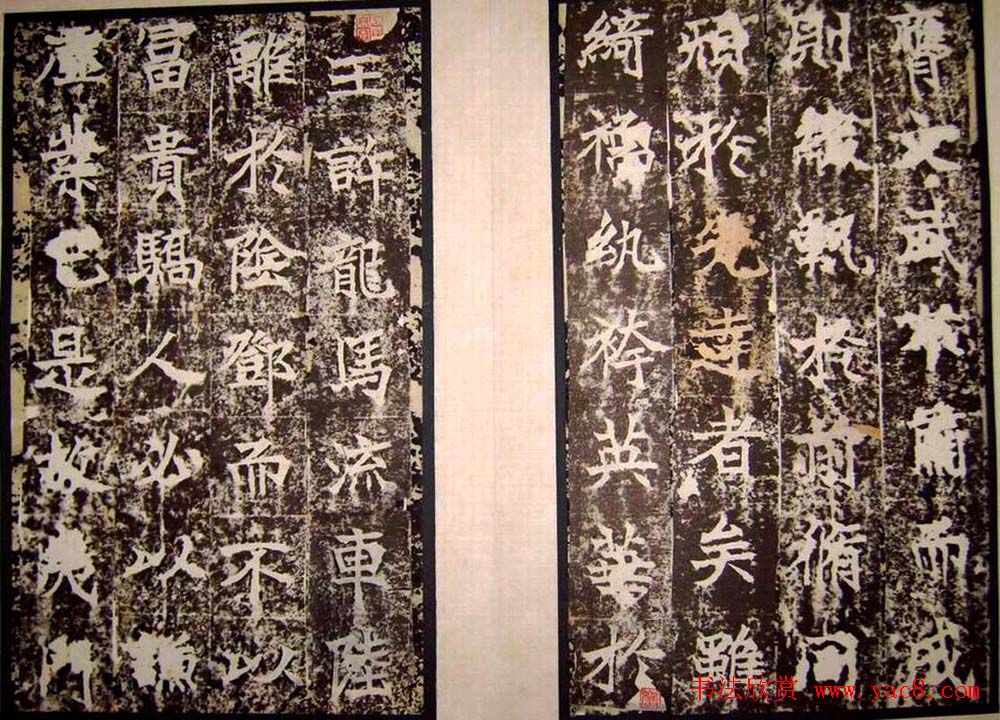 膺文武不肅而成
則綴軌於前脩同
頏於先達者矣雖
綺襦紈袴英華於
王許龍馬流車陸
離於陰鄧而不以
富貴驕人必以謙
虛業已是故夷門
书法欣赏 www.yac8.com